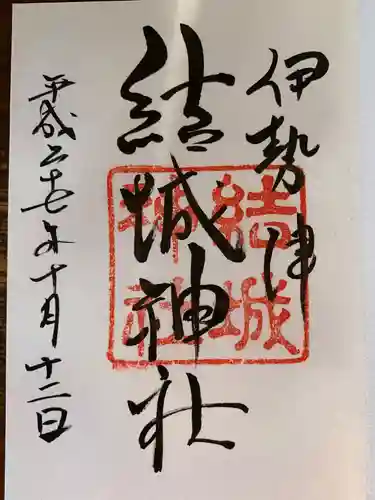 伊勢津
結城神社
結城
神社
平成二十七年十月十二日